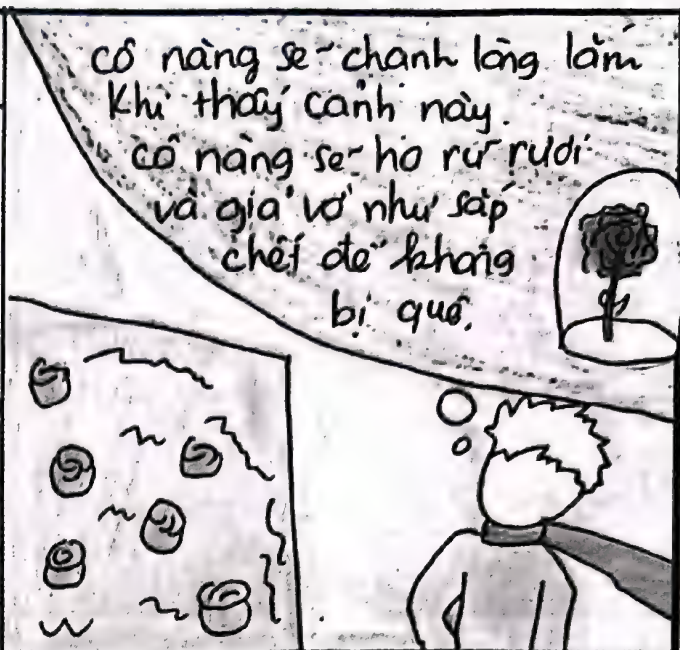 cô nàng sẽ chạnh lòng lắm
Khi thấy cảnh này.
cô nàng sẽ ho rũ rượi
và giả vờ như sắp
chết để không
bị quê.